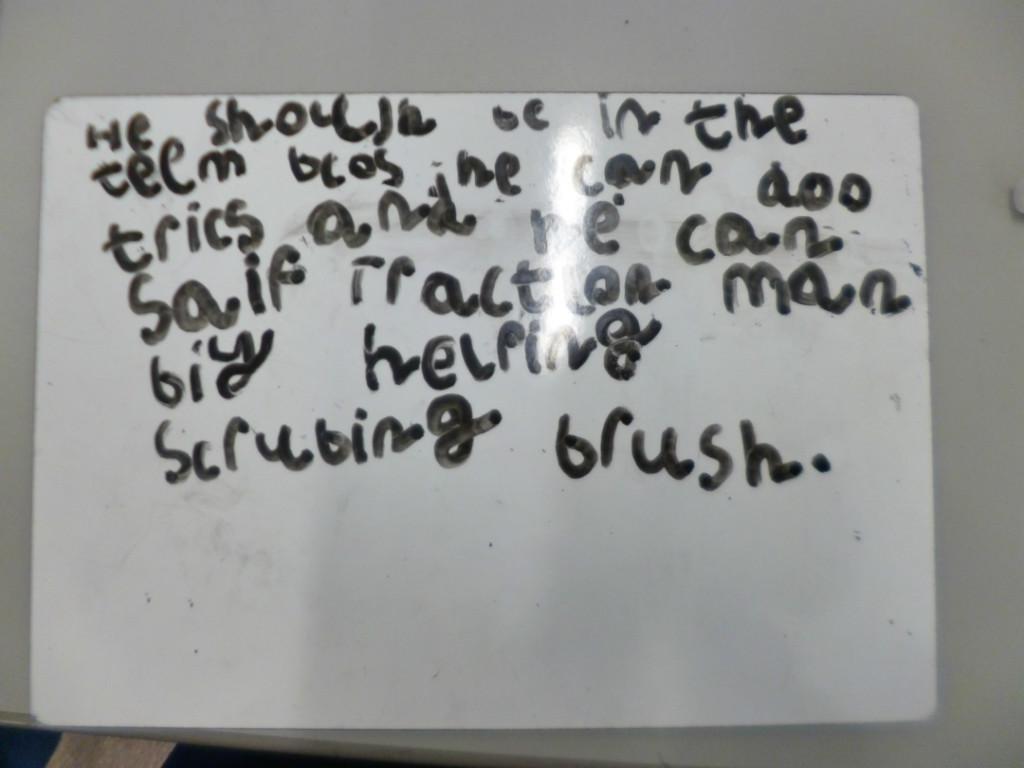 He should be in the
teem bcos he can doo
trics and he can
saif Traction man
biy helping
scrubing brush.